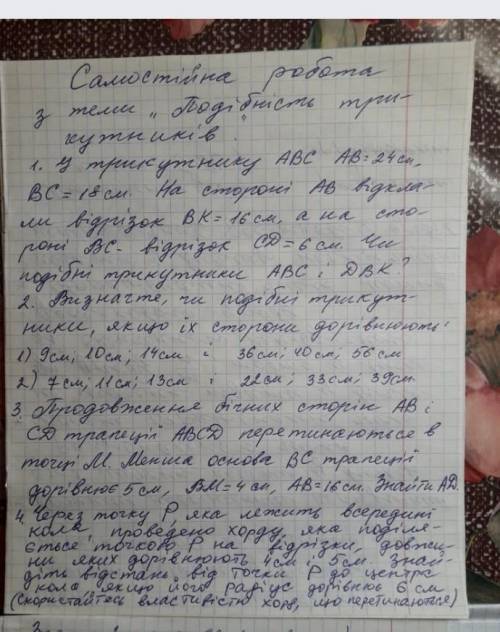 Самостійна робота
з теми „Подібність три-
кутників".
1. У трикутнику ABC AB=24см,
BC=18см. На стороні AB відкла-
ли відрізок BK=16см, а на сто-
роні BC- відрізок CD=6см. Чи
подібні трикутники ABC і DBK?
2. Визначте, чи подібні трикут-
ники, якщо їх сторони дорівнюють:
1) 9см; 10см; 14см і 36см; 40см; 56см
2) 7см; 11см; 13см і 22см; 33см; 39см.
3. Продовження бічних сторін AB і
CD трапеції ABCD перетинаються в
точці M. Менша основа BC трапеції
дорівнює 5см, BM=4см, AB=16см. Знайти AD.
4. Через точку P, яка лежить всередині
кола, проведено хорду, яка поділя-
ється точкою P на відрізки, довжи-
ни яких дорівнюють 4см і 5см. Знай-
діть відстань від точки P до центра
кола, якщо його радіус дорівнює 6 см
(скористайтесь властивістю хорд, що перетинаються)